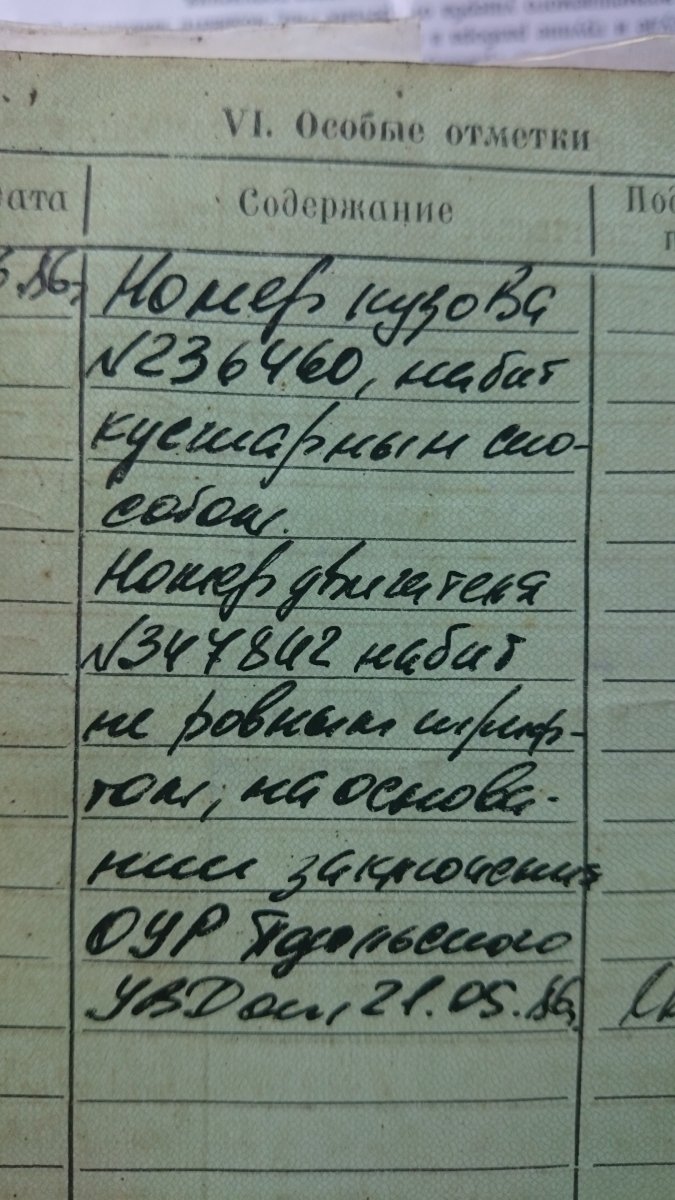 VI. Особые отметки
Дата
Содержание
Под
6.86г
Номер кузова
№236460, набит
кустарным спо-
собом.
Номер двигателя
№347842 набит
не ровным шриф-
том, на основа-
нии заключения
ОУР Подольского
УВД от 21.05.86г